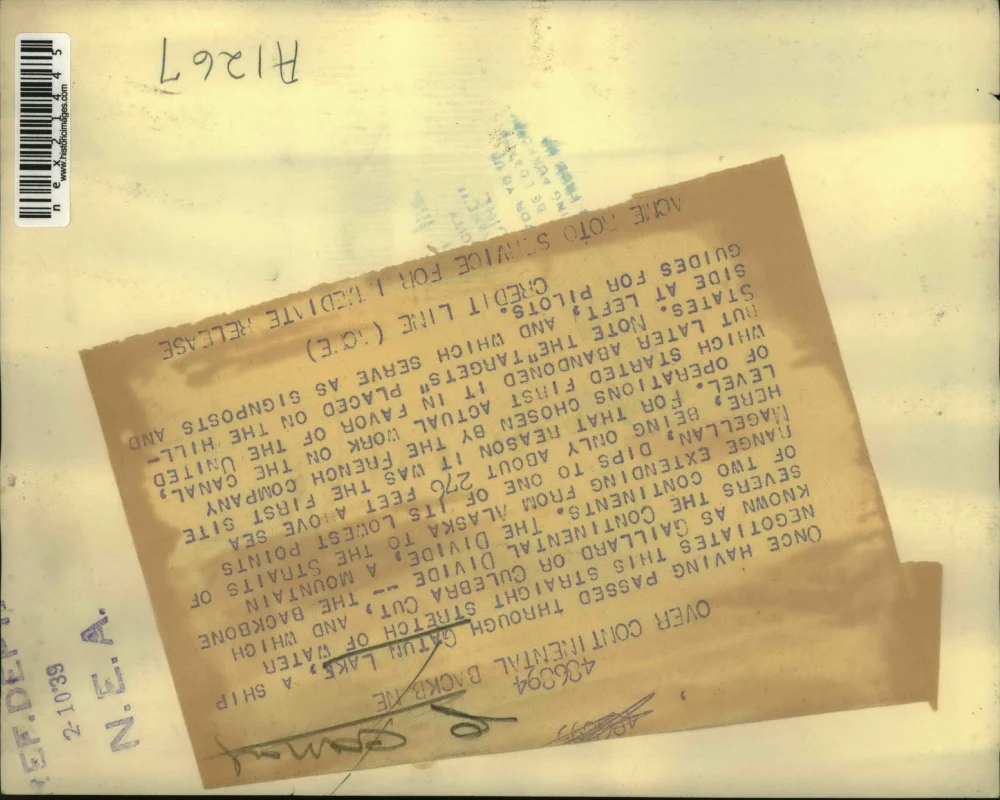 A1267
nex21445
www.historicimages.com
REF.DEPT.
2-10-39
N. E. A.
Canal
486894
OVER CONTINENTAL BACKBONE
ONCE HAVING PASSED THROUGH GATUN LAKE, A SHIP
NEGOTIATES THIS STRAIGHT STRETCH OF WATER
KNOWN AS GAILLARD OR CULEBRA CUT, AND WHICH
SEVERS THE CONTINENTAL DIVIDE -- THE BACKBONE
OF TWO CONTINENTS. THE DIVIDE, A MOUNTAIN
RANGE EXTENDING FROM ALASKA TO THE STRAITS OF
MAGELLAN, DIPS TO ONE OF ITS LOWEST POINTS
HERE, BEING ONLY ABOUT 276 FEET ABOVE SEA
LEVEL. FOR THAT REASON IT WAS THE FIRST SITE
OF OPERATIONS CHOSEN BY THE FRENCH COMPANY
WHICH STARTED FIRST ACTUAL WORK ON THE CANAL,
BUT LATER ABANDONED IT IN FAVOR OF THE UNITED
STATES. NOTE THE "TARGETS" PLACED ON THE HILL-
SIDE AT LEFT, AND WHICH SERVE AS SIGNPOSTS AND
GUIDES FOR PILOTS.
CREDIT LINE (ACME)
ACME ROTO SERVICE FOR IMMEDIATE RELEASE